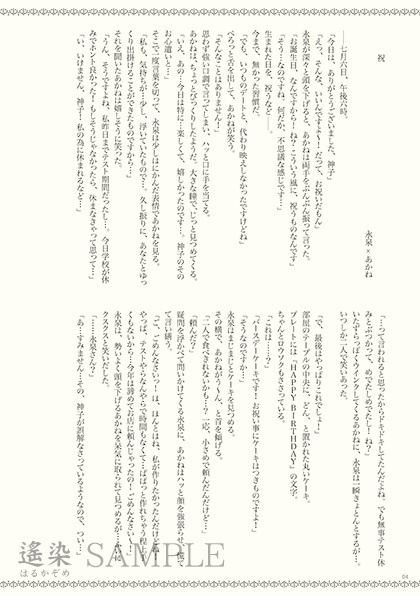 祝
永泉×あかね
――七月六日、午後六時。
「今日は、ありがとうございました、神子」
「えっ、そんな、いいんですよぅ！だって、お祝いだもん」
永泉が深々と頭を下げると、あかねは両手をぶんぶん振って言った。
「お誕生日、なんですから！ね？こういう風に、祝うものなんです」
「そう…なのですね。何だか、不思議な感じです…」
生まれた日を、祝うなど――。
今まで、無かった習慣だ。
「でも、いつものデートと、代わり映えしなかったですけどね」
ぺろっと舌を出して、あかねが笑う。
「そんなことはありません！」
思わず強い口調で言ってしまい、ハッと口に手を当てる。
あかねは、ちょっとびっくりしたようだ。大きな瞳で、じっと見つめてくる。
「いえ、あの…今日は特に…楽しくて、嬉しかったのです…。神子のその
お心遣いが…」
そこで一度言葉を切って、永泉は少しはにかんだ表情であかねを見る。
「私も、気持ちが…少し、浮いていたもので…。久し振りに、あなたとゆっ
くり出掛けることができたものですから…」
それを聞いたあかねは嬉しそうに笑った。
「うん、そうですよね、私昨日までテスト期間だったし…。今日学校が休
みでホント良かった！もしそうじゃなかったら、休まなきゃって思って…」
「い、いけません、神子！私の為に休まれるなど…」
「…って言われると思ったからドキドキしてたんだよね。でも無事テスト休
みとぶつかって、めでたしめでたし！ね？」
いたずらっぽくウインクしてくるあかねに、永泉は一瞬きょとんとするが…。
いつしか二人で笑いあった。
「で、最後はやっぱりこれでしょ！」
部屋のテーブルの中央に、どん、と置かれた丸いケーキ。
プレートには「HAPPY BIRTHDAY」の文字。
ちゃんとロウソクもささっている。
「これは……？」
「バースデーケーキです！お祝い事にケーキはつきものですよ！」
「そうなのですか…」
永泉はまじまじとケーキを見つめる。
その横で、あかねがうーん、と首を傾げる。
「二人で食べきれないかも…？一応、小さめで頼んだんだけど…」
「頼んだ？」
疑問を浮かべて問いかけてくる永泉に、あかねはハッと顔を強張らせ、慌て
て言い繕う。
「ご、ごめんなさいっ！は、ほんとはね、手作りしたかったんだけどね！
やっぱ、テストやらなんやらで時間もなくて…ぱぱっと作れちゃう程上
くもないから…今年は諦めてお店に頼んじゃったの！ごめんなさい！」
永泉は、勢いよく頭を下げるあかねを呆気に取られて見つめるが…かいに
クスクスと笑いだした。
「……永泉さん？」
「あ…すみません…その、神子が誤解なさっているので、つい…」
遙染 SAMPLE
はるかぞめ
04